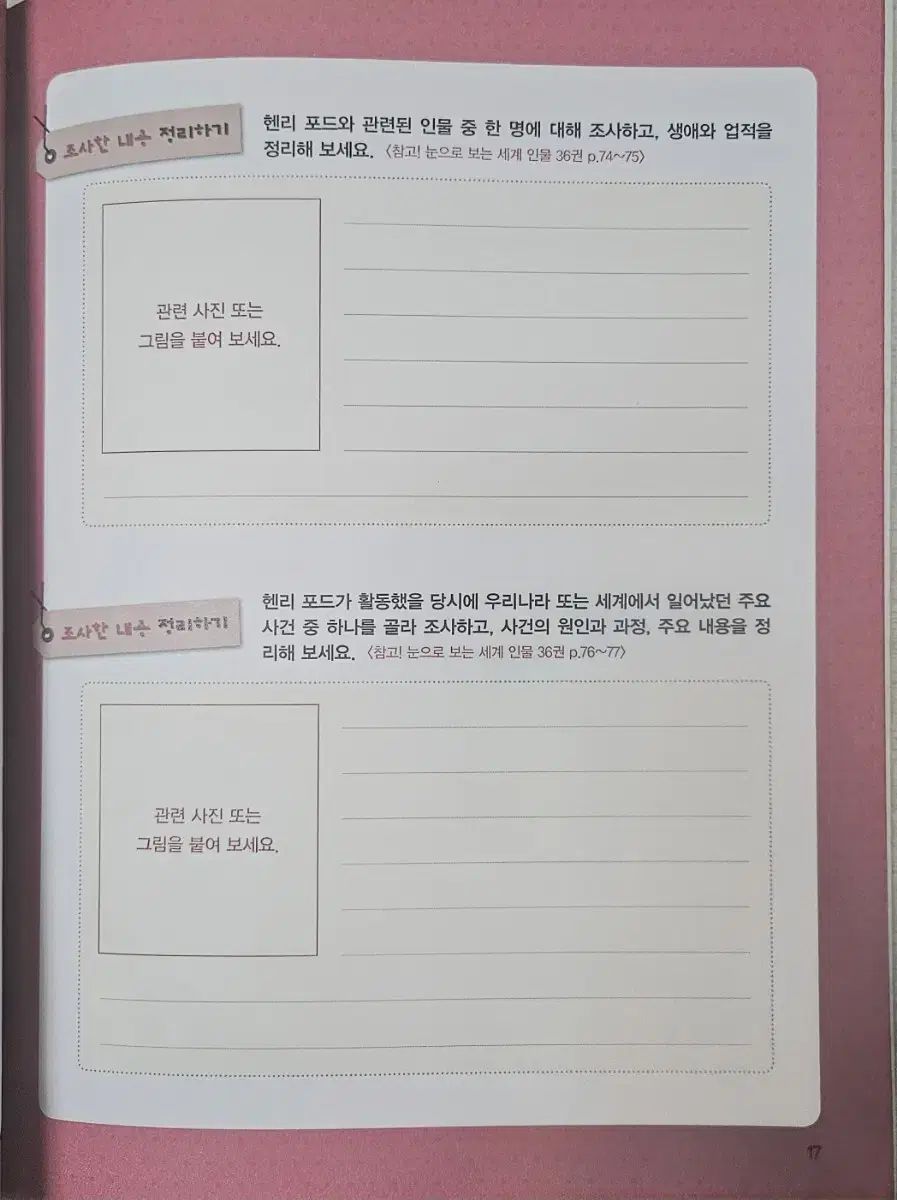 조사한 내용 정리하기
헨리 포드와 관련된 인물 중 한 명에 대해 조사하고, 생애와 업적을
정리해 보세요. 〈참고! 눈으로 보는 세계 인물 36권 p.74~75〉
관련 사진 또는
그림을 붙여 보세요.
조사한 내용 정리하기
헨리 포드가 활동했을 당시에 우리나라 또는 세계에서 일어났던 주요
사건 중 하나를 골라 조사하고, 사건의 원인과 과정, 주요 내용을 정
리해 보세요. 〈참고! 눈으로 보는 세계 인물 36권 p.76~77〉
관련 사진 또는
그림을 붙여 보세요.
17